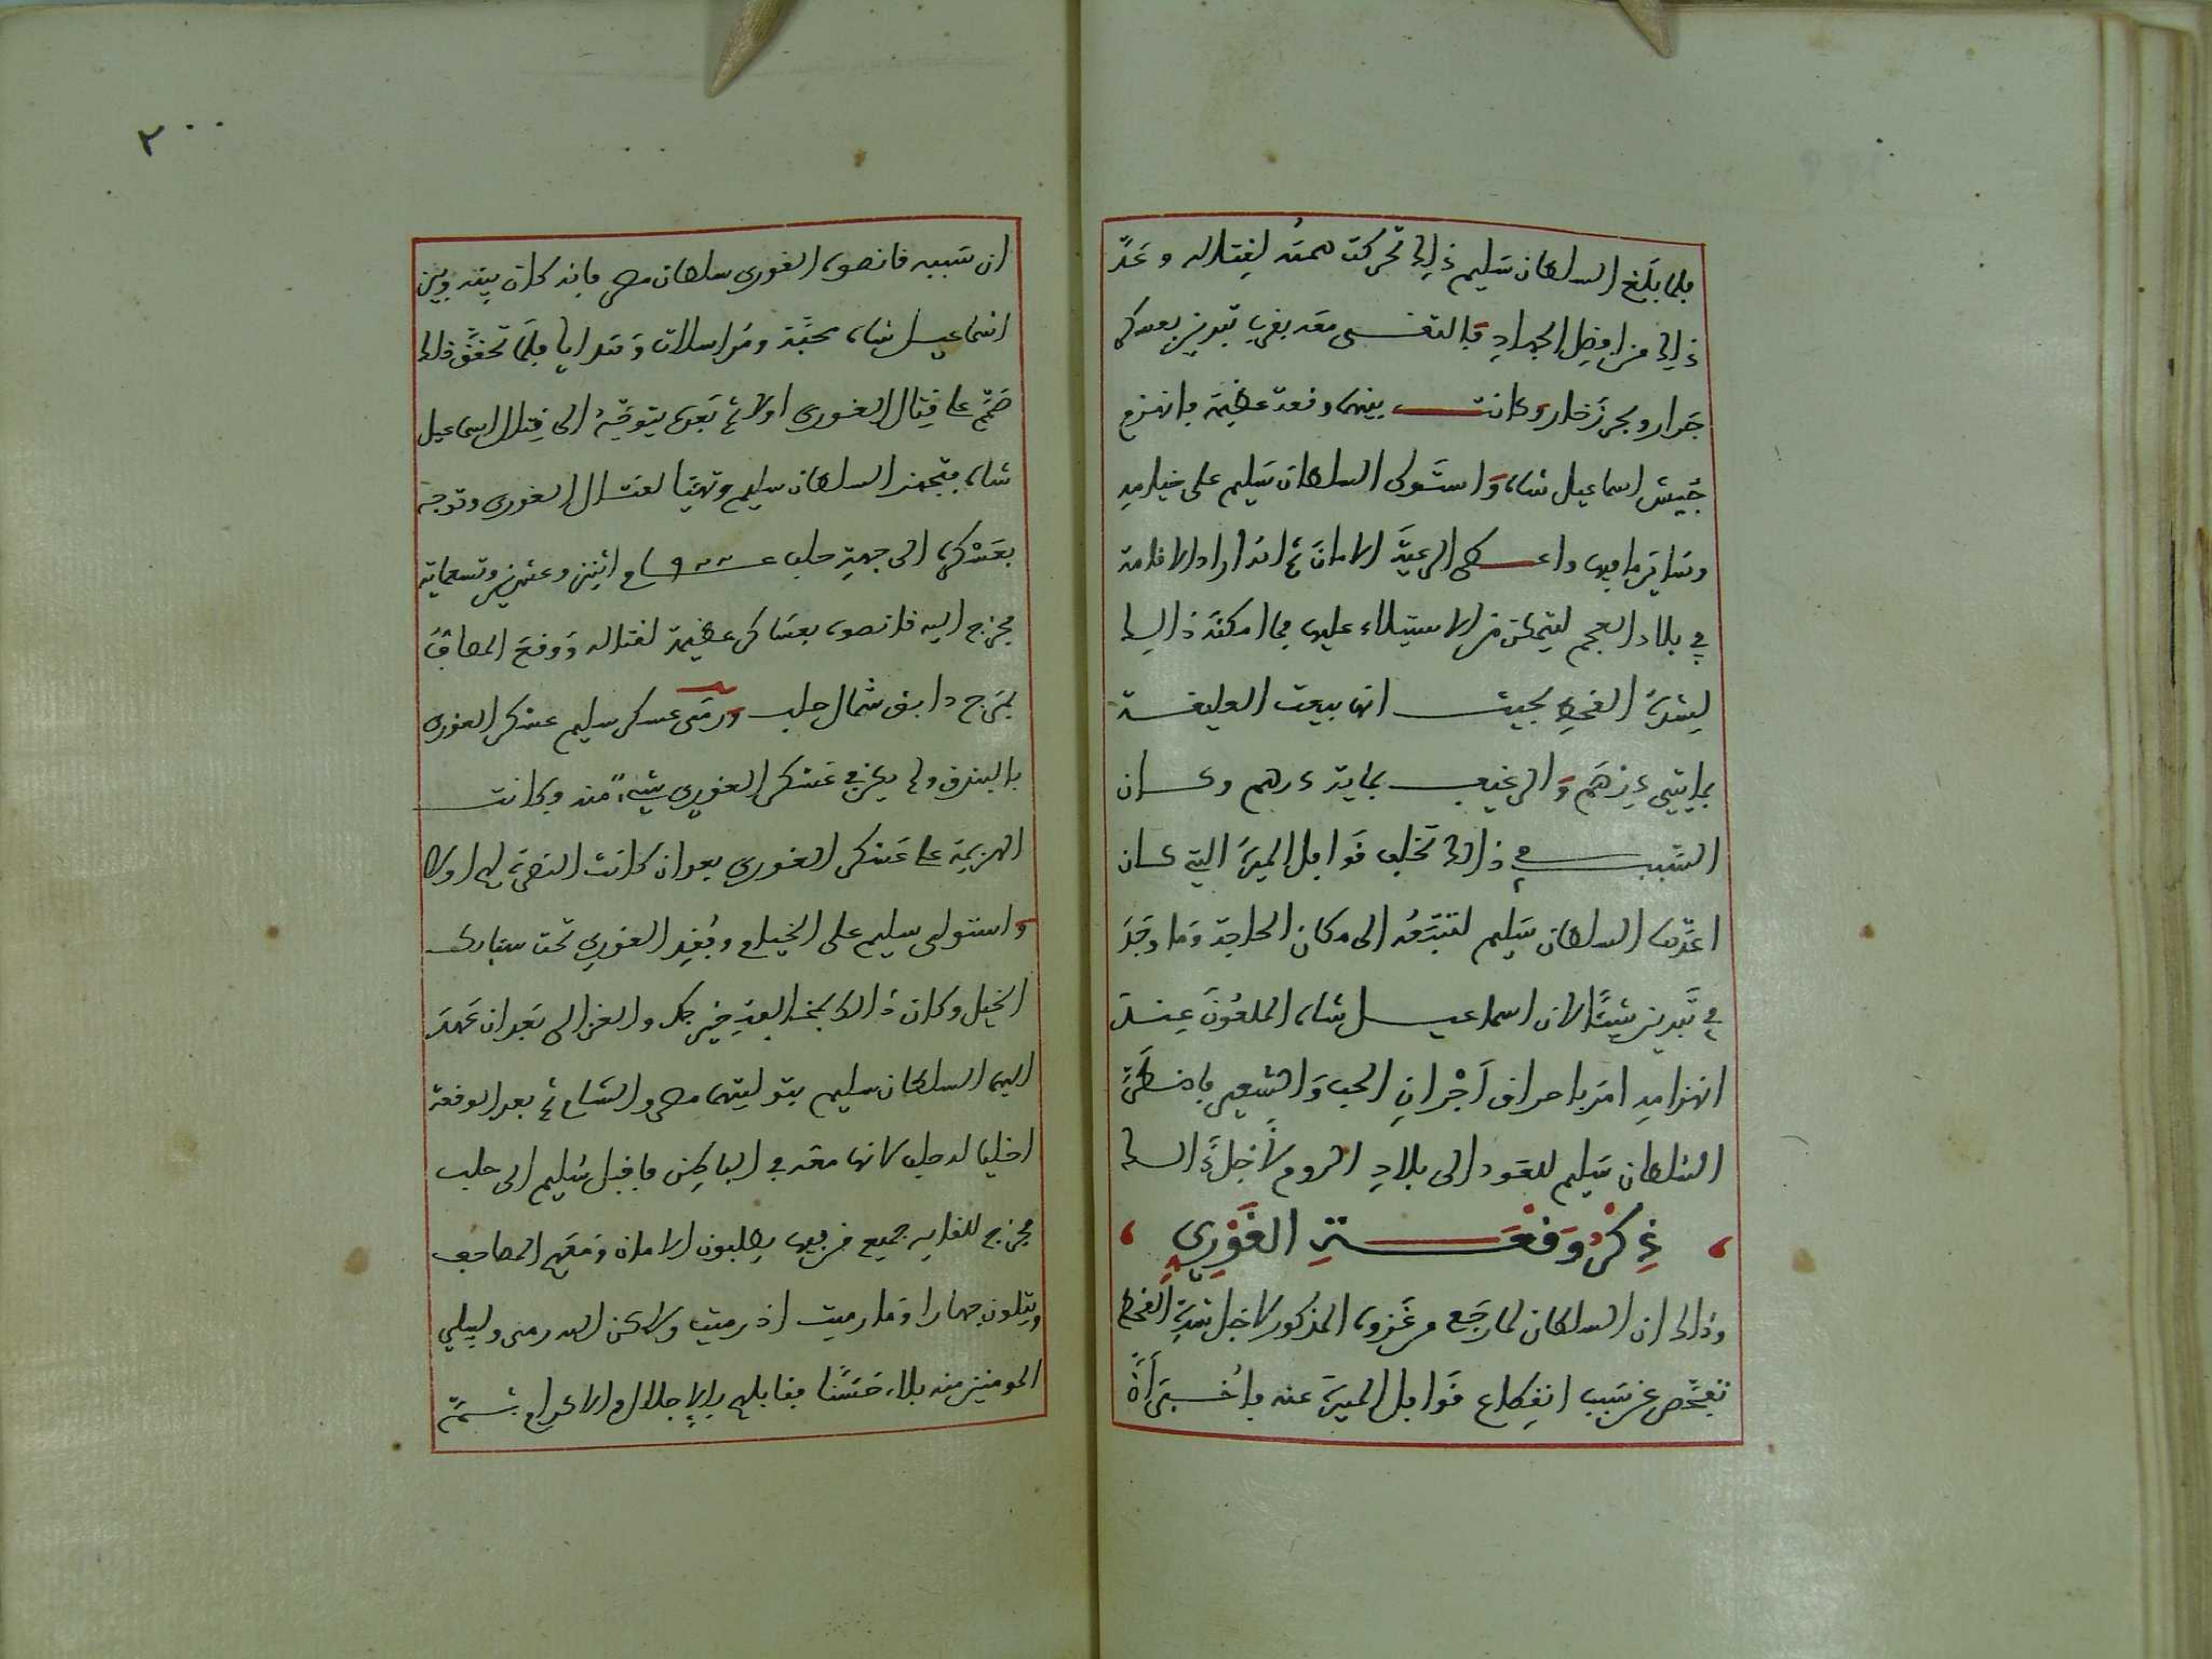 فلما بلغ السلطان سليم ذلك تحركت همته لقتاله وعد
ذلك من افضل الجهاد فالتقى معه بقرب تبريز بعسكر
جرار وبحر زخار وكانت بينهما وقعة عظيمة فانهزم
جيش اسماعيل شاه واستولى السلطان سليم على خيامه
وساير ما فيها واعطى الرعية الامان ثم انه اراد الاقامة
في بلاد العجم ليتمكن من الاستيلاء عليها فما امكنه ذالك
لشدة القحط بحيث انها بيعت العليقة
بمايتي درهم والرغيف بماية درهم وكان
السبب في ذالك تخلف قوافل الميرة التي كان
اعدها السلطان سليم لتتبعه الى مكان الحاجة وما وجد
في تبريز شيئا لان اسماعيل شاه الملعون عند
انهزامه امر باحراق اجران الحب والشعير فاضطر
السلطان سليم للعود الى بلاد الروم لاجل ذالك
ذكر وقعة الغوري
وذالك ان السلطان لما رجع من غزوه المذكور لاجل شدة القحط
تفحص عن سبب انقطاع قوافل الميرة عنه فاخبر
٢٠٠
ان سببه قانصوه الغوري سلطان مصر فانه كان بينه وبين
اسماعيل شاه محبة ومراسلات وهدايا فلما تحقق ذالك
صمم على قتال الغوري اولا ثم بعده يتوجه الى قتال اسماعيل
شاه فتجهز السلطان سليم وتهيا لقتال الغوري وتوجه
بعسكره الى جهة حلب عام اثنين وعشرين وتسعماية
فخرج اليه قانصوه بعساكر عظيمة لقتاله ووقع المصاف
بمرج دابق شمال حلب ورمى عسكر سليم عسكر الغوري
بالبندق ولم يكن في عسكر الغوري شيء منه وكانت
الهزيمة على عسكر الغوري بعد ان كانت النصرة لهم اولا
واستولى سليم على الخيام وفقد الغوري تحت سنابك
الخيل وكان ذالك بمخالفة خير بك والغزالي بعد ان عهد
اليهما السلطان سليم بتوليتهما مصر والشام ثم بعد الوقعة
اخليا له حلب لانهما معه في الباطن فاقبل سليم الى حلب
فخرج للقايه جميع من فيها يطلبون الامان ومعهم المصاحف
ويتلون جهارا وما رميت اذ رميت ولاكن الله رمى وليبلي
المومنين منه بلاء حسنا فقابلهم بالاجلال والاكرام